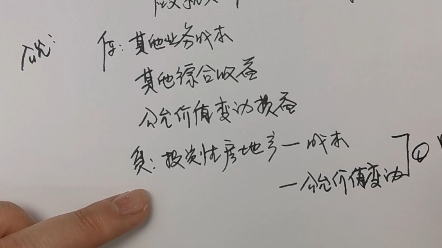 借:其他业务成本
其他综合收益
公允价值变动损益
贷:投资性房地产一成本
一公允价值变动
①